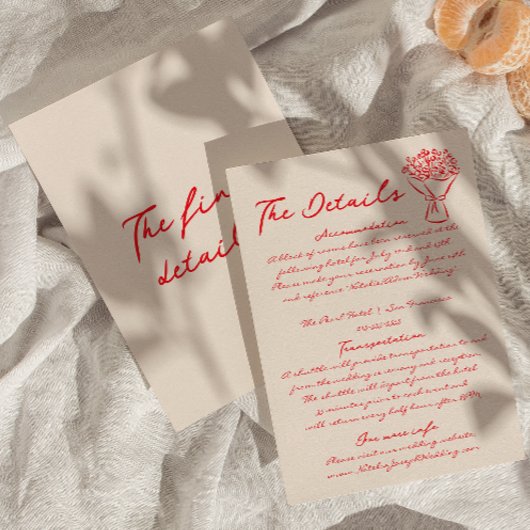 The fin
detail
The Details
Accommodation
A block of rooms have been reserved at the
following hotel for July and
Please make your reservation by June
and reference
The Pearl Hotel | San Francisco
Transportation
A shuttle will provide transportation to and
from the wedding ceremony and reception.
The shuttle will depart from the hotel
minutes prior to each event and
will return every half hour after
For more info
Please visit our wedding website,
www.NataliaJosephWedding.com